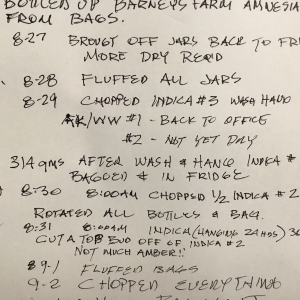 BOTTLED UP BARNEYS FARM AMNESIA
FROM BAGS.
8-27 BROUGT OFF JARS BACK TO FRI
MORE DRY REQ'D
8-28 FLUFFED ALL JARS
8-29 CHOPPED INDICA #3 WASH HAND
AK/WW #1 - BACK TO OFFICE
#2 - NOT YET DRY
314 gms AFTER WASH & HANG INDICA #
BAGGED & IN FRIDGE
8-30 8:00AM CHOPPED 1/2 INDICA # 2
ROTATED ALL BOTTLES & BAG.
8-31 8:00AM INDICA (HANGING 24 HRS) 30
CUT A TOP BUD OFF OF INDICA # 2
NOT MUCH AMBER!!
9-1 FLUFFED BAGS
9-2 CHOPPED EVERYTHING